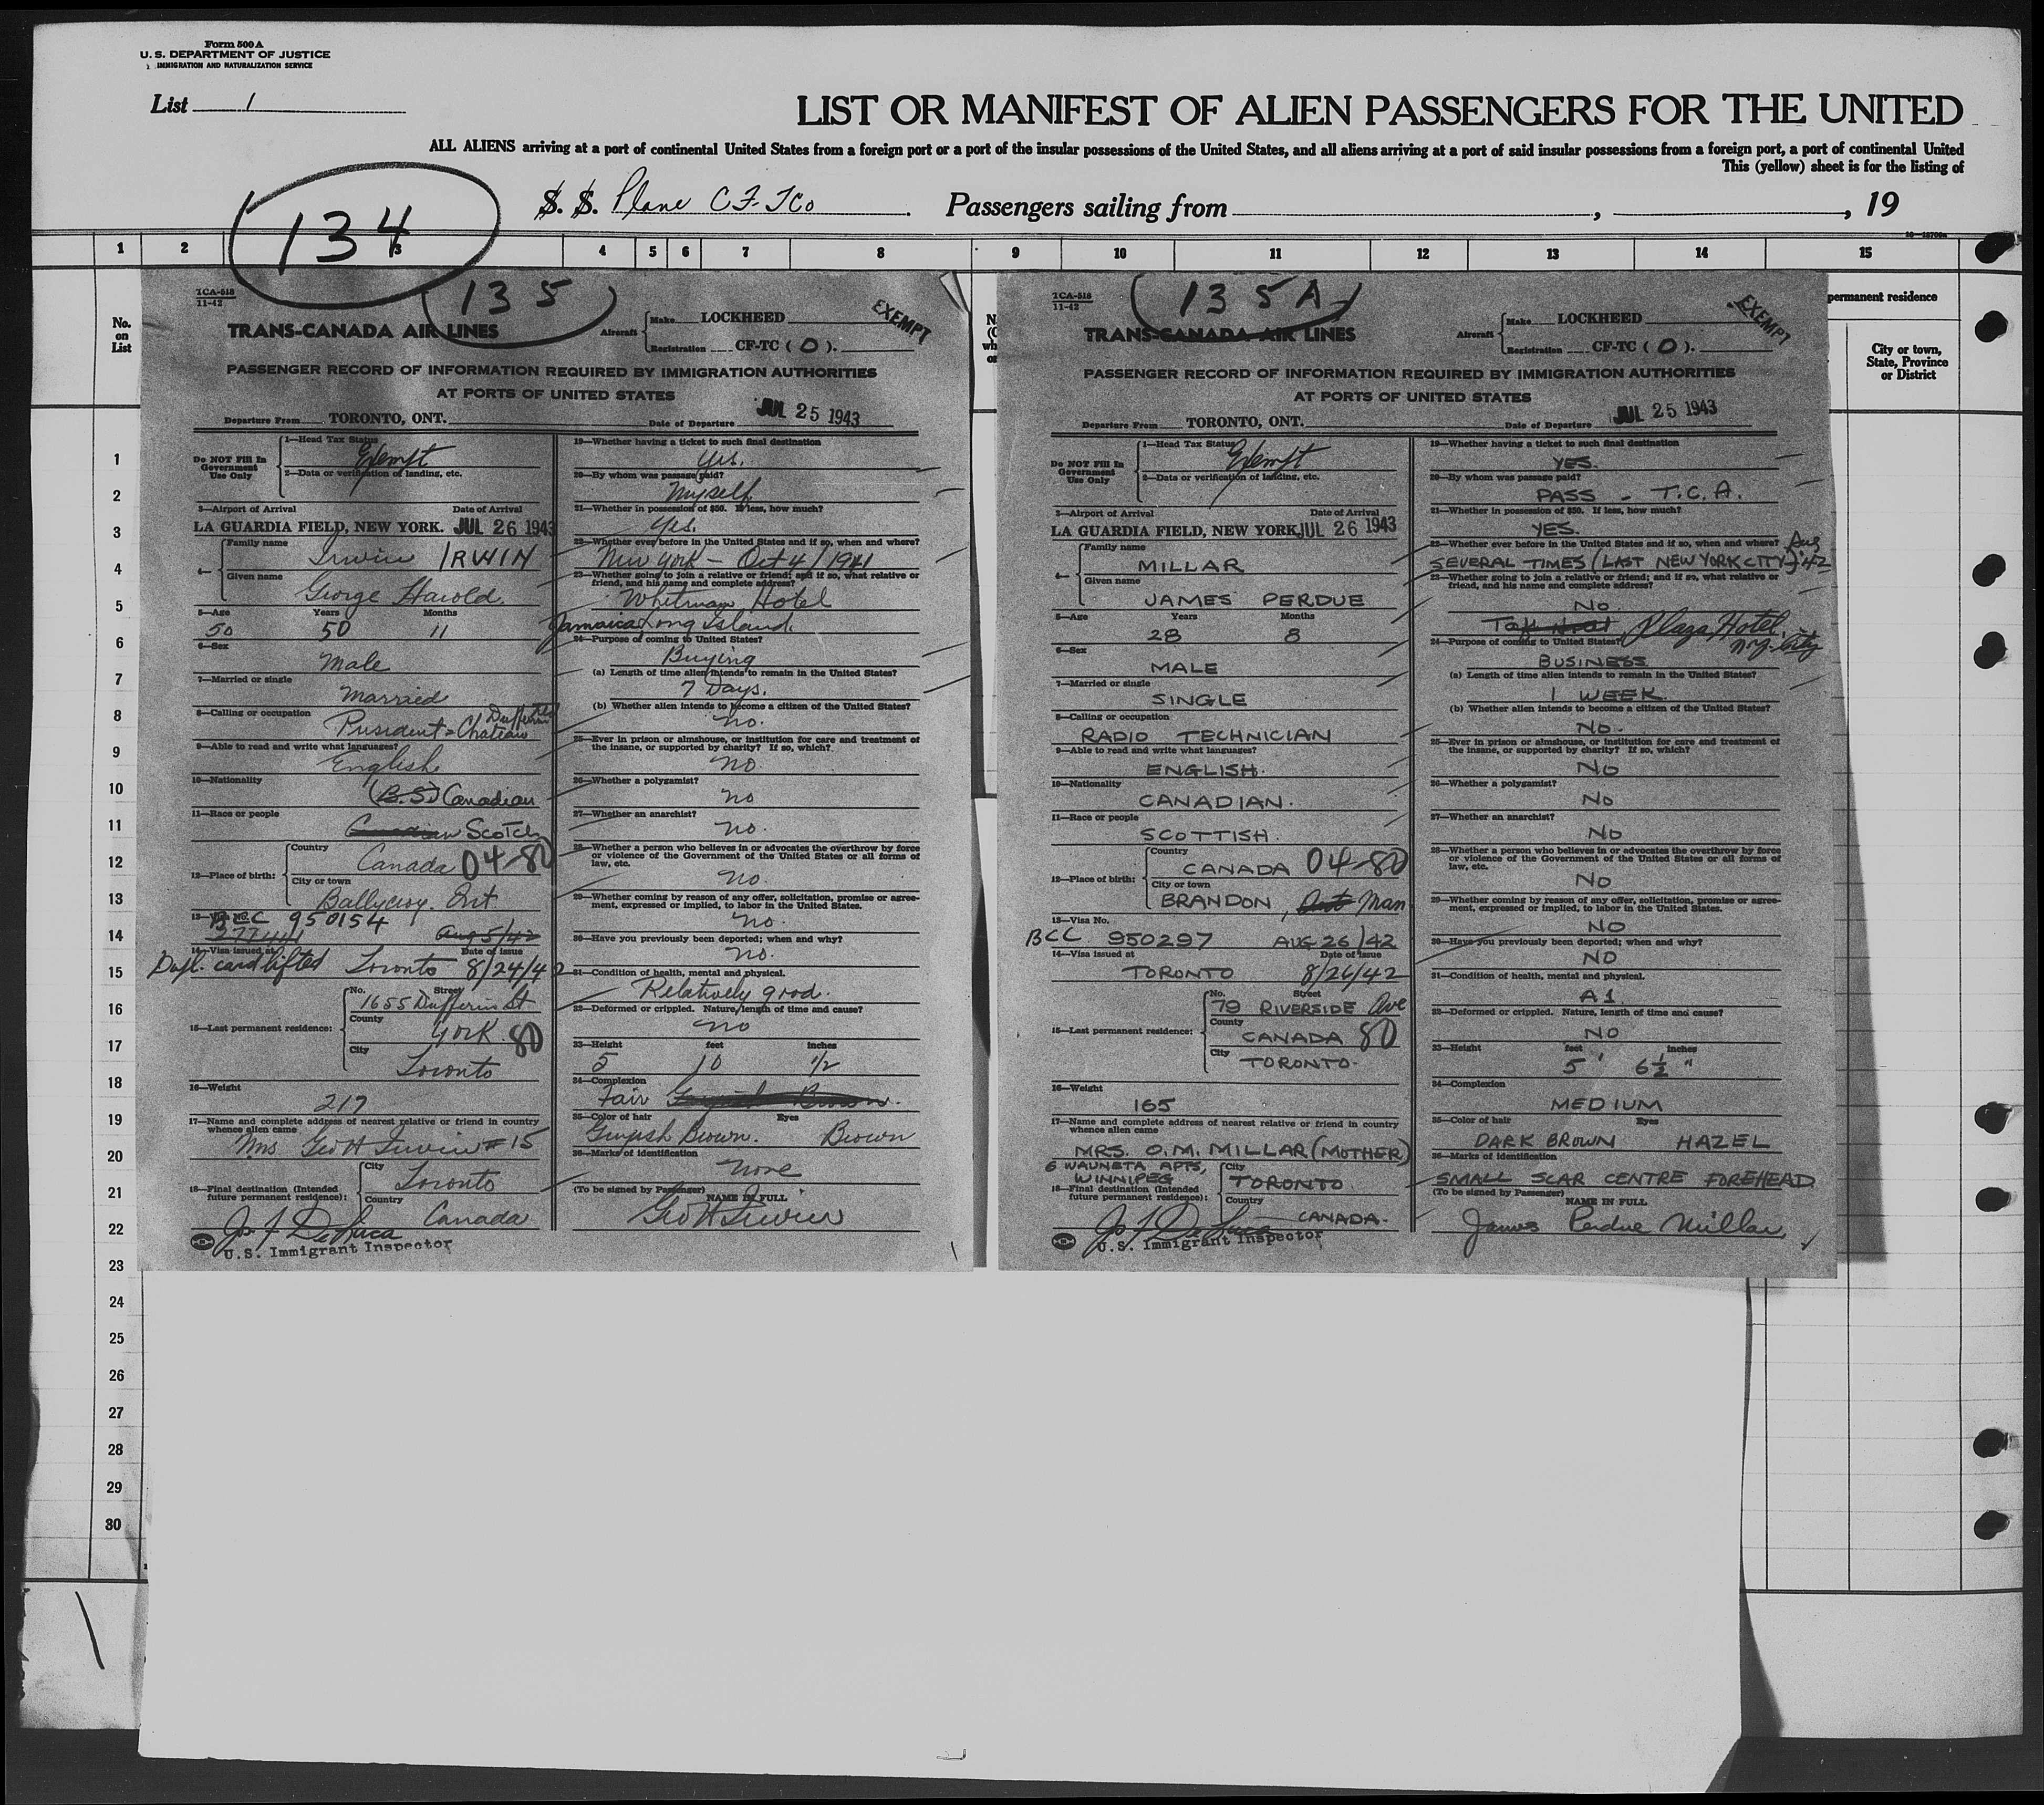 Form 500 A
U. S. DEPARTMENT OF JUSTICE
IMMIGRATION AND NATURALIZATION SERVICE
List 1
LIST OR MANIFEST OF ALIEN PASSENGERS FOR THE UNITED
ALL ALIENS arriving at a port of continental United States from a foreign port or a port of the insular possessions of the United States, and all aliens arriving at a port of said insular possessions from a foreign port, a port of continental United
This (yellow) sheet is for the listing of
134
S. S. Plane CF-TCO Passengers sailing from , , 19
1 2 3 4 5 6 7 8 9 10 11 12 13 14 15
No. on List
permanent residence
City or town, State, Province or District
1
2
3
4
5
6
7
8
9
10
11
12
13
14
15
16
17
18
19
20
21
22
23
24
25
26
27
28
29
30
TCA-518
11-42
135
EXEMPT
TRANS-CANADA AIR LINES
Aircraft Make LOCKHEED
Registration CF-TC ( O ).
PASSENGER RECORD OF INFORMATION REQUIRED BY IMMIGRATION AUTHORITIES
AT PORTS OF UNITED STATES
Departure From TORONTO, ONT. Date of Departure JUL 25 1943
Do NOT Fill In Government Use Only
1—Head Tax Status Exempt
2—Data or verification of landing, etc.
3—Airport of Arrival Date of Arrival
LA GUARDIA FIELD, NEW YORK. JUL 26 1943
4— Family name Irwin IRWIN
Given name George Harold.
5—Age Years Months
50 50 11
6—Sex
Male
7—Married or single
Married
8—Calling or occupation
President - Chateau Dufferin Ltd
9—Able to read and write what languages?
English
10—Nationality
(B.S.) Canadian
11—Race or people
Canadian Scotch
12—Place of birth: Country Canada 04-80
City or town Ballycroy. Ont.
13—Visa No.
BCC 950154
Aug 5/42
14—Visa issued at Date of issue
Dupl. card lifted Toronto 8/24/42
15—Last permanent residence: No. Street
1655 Dufferin St
County York 80
City Toronto
16—Weight
217
17—Name and complete address of nearest relative or friend in country whence alien came
Mrs. Geo H Irwin #15
18—Final destination (Intended future permanent residence): City Toronto
Country Canada
Jo. J. DeLuca
U.S. Immigrant Inspector
19—Whether having a ticket to such final destination
Yes.
20—By whom was passage paid?
Myself
21—Whether in possession of $50. If less, how much?
Yes.
22—Whether ever before in the United States and if so, when and where?
New York - Oct 4/1941
23—Whether going to join a relative or friend; and if so, what relative or friend, and his name and complete address?
Whitman Hotel
Jamaica Long Island.
24—Purpose of coming to United States?
Buying
(a) Length of time alien intends to remain in the United States?
7 Days.
(b) Whether alien intends to become a citizen of the United States?
no.
25—Ever in prison or almshouse, or institution for care and treatment of the insane, or supported by charity? If so, which?
no
26—Whether a polygamist?
no
27—Whether an anarchist?
no.
28—Whether a person who believes in or advocates the overthrow by force or violence of the Government of the United States or all forms of law, etc.
no.
29—Whether coming by reason of any offer, solicitation, promise or agreement, expressed or implied, to labor in the United States.
no.
30—Have you previously been deported; when and why?
no.
31—Condition of health, mental and physical.
Relatively good.
32—Deformed or crippled. Nature, length of time and cause?
no
33—Height feet inches
5 10 1/2
34—Complexion
Fair
35—Color of hair Eyes
Greyish Brown. Brown
36—Marks of identification
none
(To be signed by Passenger) NAME IN FULL
Geo H Irwin
TCA-518
11-42
135A
EXEMPT
TRANS-CANADA AIR LINES
Aircraft Make LOCKHEED
Registration CF-TC ( O ).
PASSENGER RECORD OF INFORMATION REQUIRED BY IMMIGRATION AUTHORITIES
AT PORTS OF UNITED STATES
Departure From TORONTO, ONT. Date of Departure JUL 25 1943
Do NOT Fill In Government Use Only
1—Head Tax Status Exempt
2—Data or verification of landing, etc.
3—Airport of Arrival Date of Arrival
LA GUARDIA FIELD, NEW YORK JUL 26 1943
4— Family name MILLAR
Given name JAMES PERDUE
5—Age Years Months
28 8
6—Sex
MALE
7—Married or single
SINGLE
8—Calling or occupation
RADIO TECHNICIAN
9—Able to read and write what languages?
ENGLISH.
10—Nationality
CANADIAN.
11—Race or people
SCOTTISH.
12—Place of birth: Country CANADA 04-80
City or town BRANDON, Ont Man
13—Visa No.
BCC 950297 AUG 26/42
14—Visa issued at Date of issue
TORONTO 8/26/42
15—Last permanent residence: No. Street
79 RIVERSIDE Ave
County CANADA 80
City TORONTO.
16—Weight
165
17—Name and complete address of nearest relative or friend in country whence alien came
MRS. O.M. MILLAR (MOTHER)
6 WAUNETA APTS, WINNIPEG
18—Final destination (Intended future permanent residence): City TORONTO
Country CANADA.
Jo. J. DeLuca
U.S. Immigrant Inspector
19—Whether having a ticket to such final destination
YES.
20—By whom was passage paid?
PASS - T.C.A.
21—Whether in possession of $50. If less, how much?
YES.
22—Whether ever before in the United States and if so, when and where?
SEVERAL TIMES (LAST NEW YORK CITY) Aug '42
23—Whether going to join a relative or friend; and if so, what relative or friend, and his name and complete address?
No
Plaza Hotel, N.Y. City
24—Purpose of coming to United States?
BUSINESS
(a) Length of time alien intends to remain in the United States?
1 WEEK.
(b) Whether alien intends to become a citizen of the United States?
NO.
25—Ever in prison or almshouse, or institution for care and treatment of the insane, or supported by charity? If so, which?
NO
26—Whether a polygamist?
NO
27—Whether an anarchist?
NO
28—Whether a person who believes in or advocates the overthrow by force or violence of the Government of the United States or all forms of law, etc.
NO
29—Whether coming by reason of any offer, solicitation, promise or agreement, expressed or implied, to labor in the United States.
NO
30—Have you previously been deported; when and why?
NO
31—Condition of health, mental and physical.
A1.
32—Deformed or crippled. Nature, length of time and cause?
NO
33—Height feet inches
5' 6½"
34—Complexion
MEDIUM
35—Color of hair Eyes
DARK BROWN HAZEL
36—Marks of identification
SMALL SCAR CENTRE FOREHEAD
(To be signed by Passenger) NAME IN FULL
James Perdue Millar